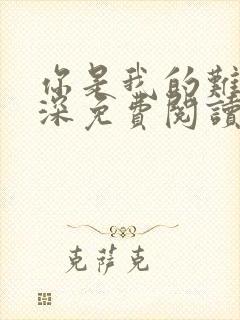 你是我的難
深免費閱讀
克萨克